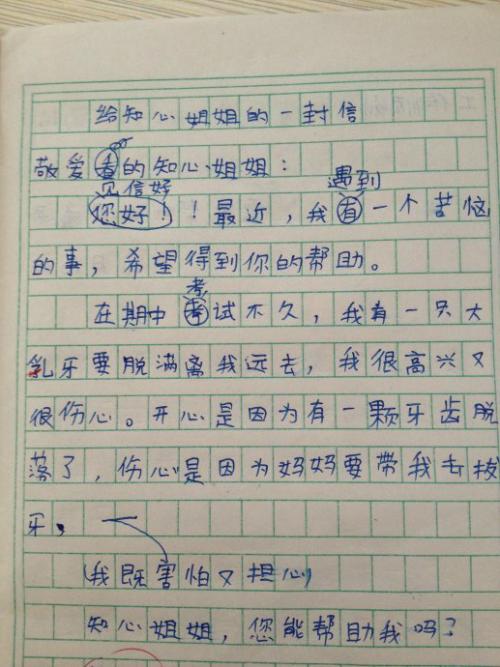 给知心姐姐的一封信
敬爱的知心姐姐：
见信好
遇到
您好！！最近，我有一个苦恼
的事，希望得到你的帮助。
考
在期中考试不久，我有一只大
乳牙要脱满离我远去，我很高兴又
很伤心。开心是因为有一颗牙齿脱
落了，伤心是因为妈妈要带我去拔
牙，
我既害怕又担心
知心姐姐，您能帮助我吗？